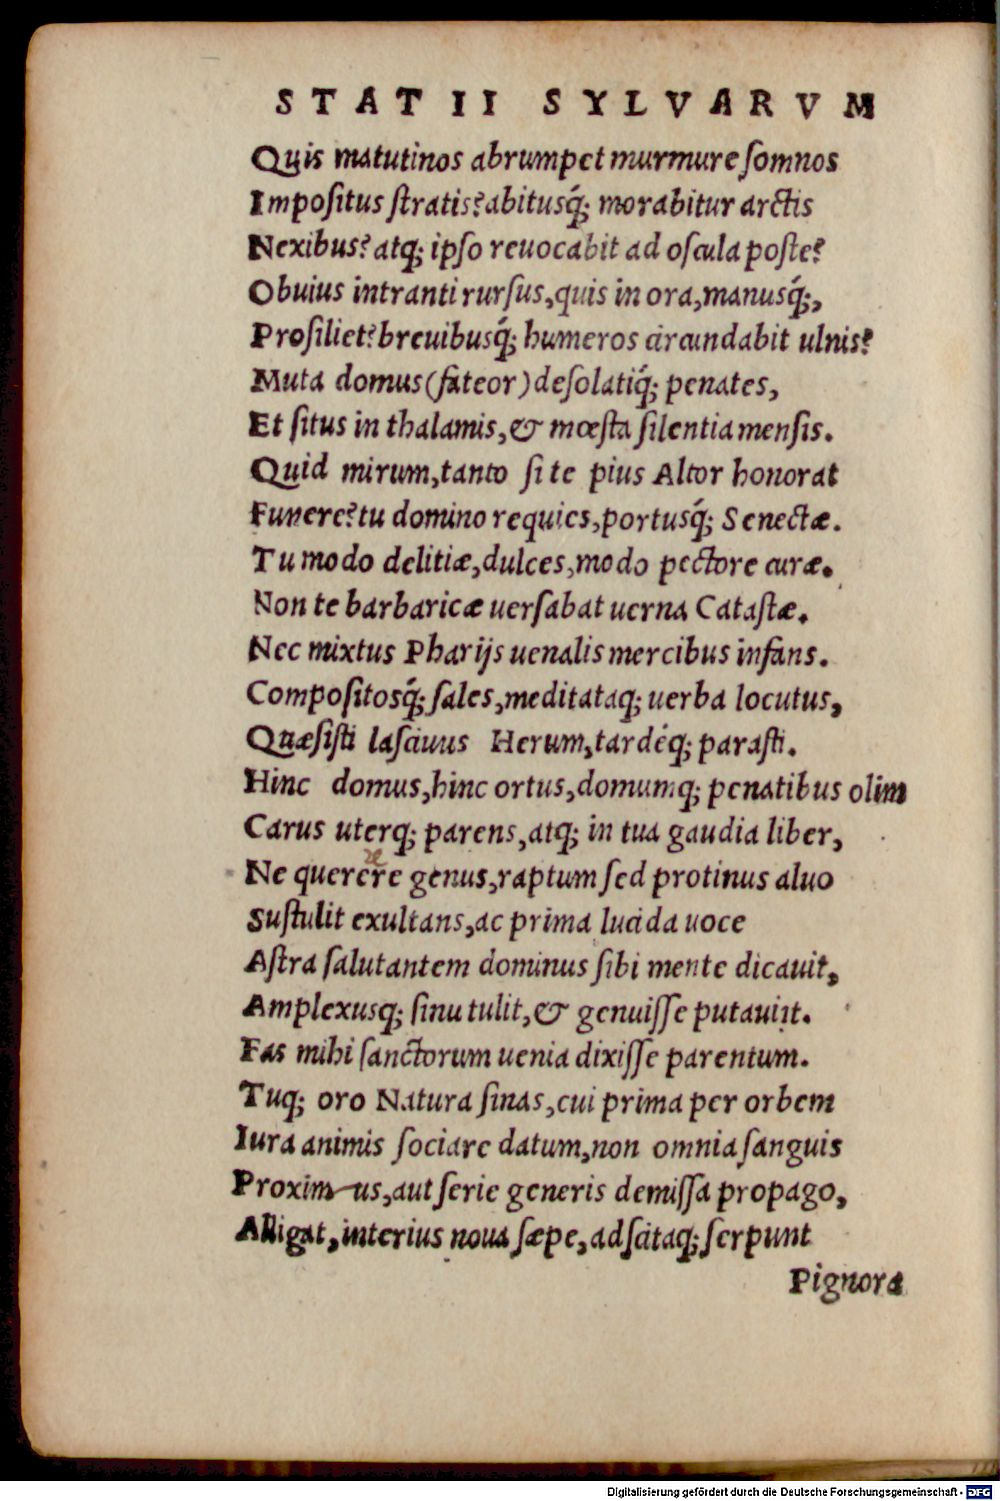 STATII SYLVARVM
Quis matutinos abrumpet murmure ſomnos
Impoſitus ſtratis? abitusq́; morabitur arctis
Nexibus? atq; ipſo reuocabit ad oſcula poſte?
Obuius intranti rurſus, quis in ora, manusq́;,
Proſiliet? breuibusq́; humeros circundabit ulnis?
Muta domus (fateor) deſolatiq́; penates,
Et ſitus in thalamis, & mœſta ſilentia menſis.
Quid mirum, tanto ſi te pius Altor honorat
Funere? tu domino requies, portusq́; Senectæ.
Tu modo delitiæ, dulces, modo pectore curæ.
Non te barbaricæ uerſabat uerna Cataſtæ.
Nec mixtus Pharijs uenalis mercibus infans.
Compoſitosq́; ſales, meditataq; uerba locutus,
Quæſiſti laſciuus Herum, tardéq; paraſti.
Hinc domus, hinc ortus, domumq; penatibus olim
Carus uterq; parens, atq; in tua gaudia liber,
Ne querere genus, raptum ſed protinus aluo
Suſtulit exultans, ac prima lucida uoce
Aſtra ſalutantem dominus ſibi mente dicauit,
Amplexusq; ſinu tulit, & genuiſſe putauit.
Fas mihi ſanctorum uenia dixiſſe parentum.
Tuq; oro Natura ſinas, cui prima per orbem
Iura animis ſociare datum, non omnia ſanguis
Proximus, aut ſerie generis demiſſa propago,
Alligat, interius noua ſæpe, adſcitaq; ſerpunt
Pignora
Digitalisierung gefördert durch die Deutsche Forschungsgemeinschaft - DFG